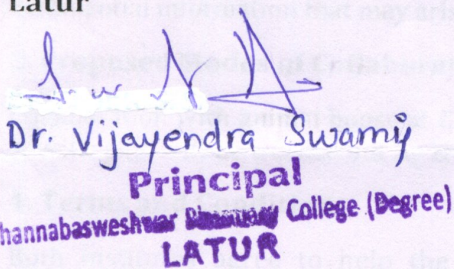 Latur
Dr. Vijayendra Swamy
Principal
hannabasweshwar Pharmacy College (Degree)
LATUR